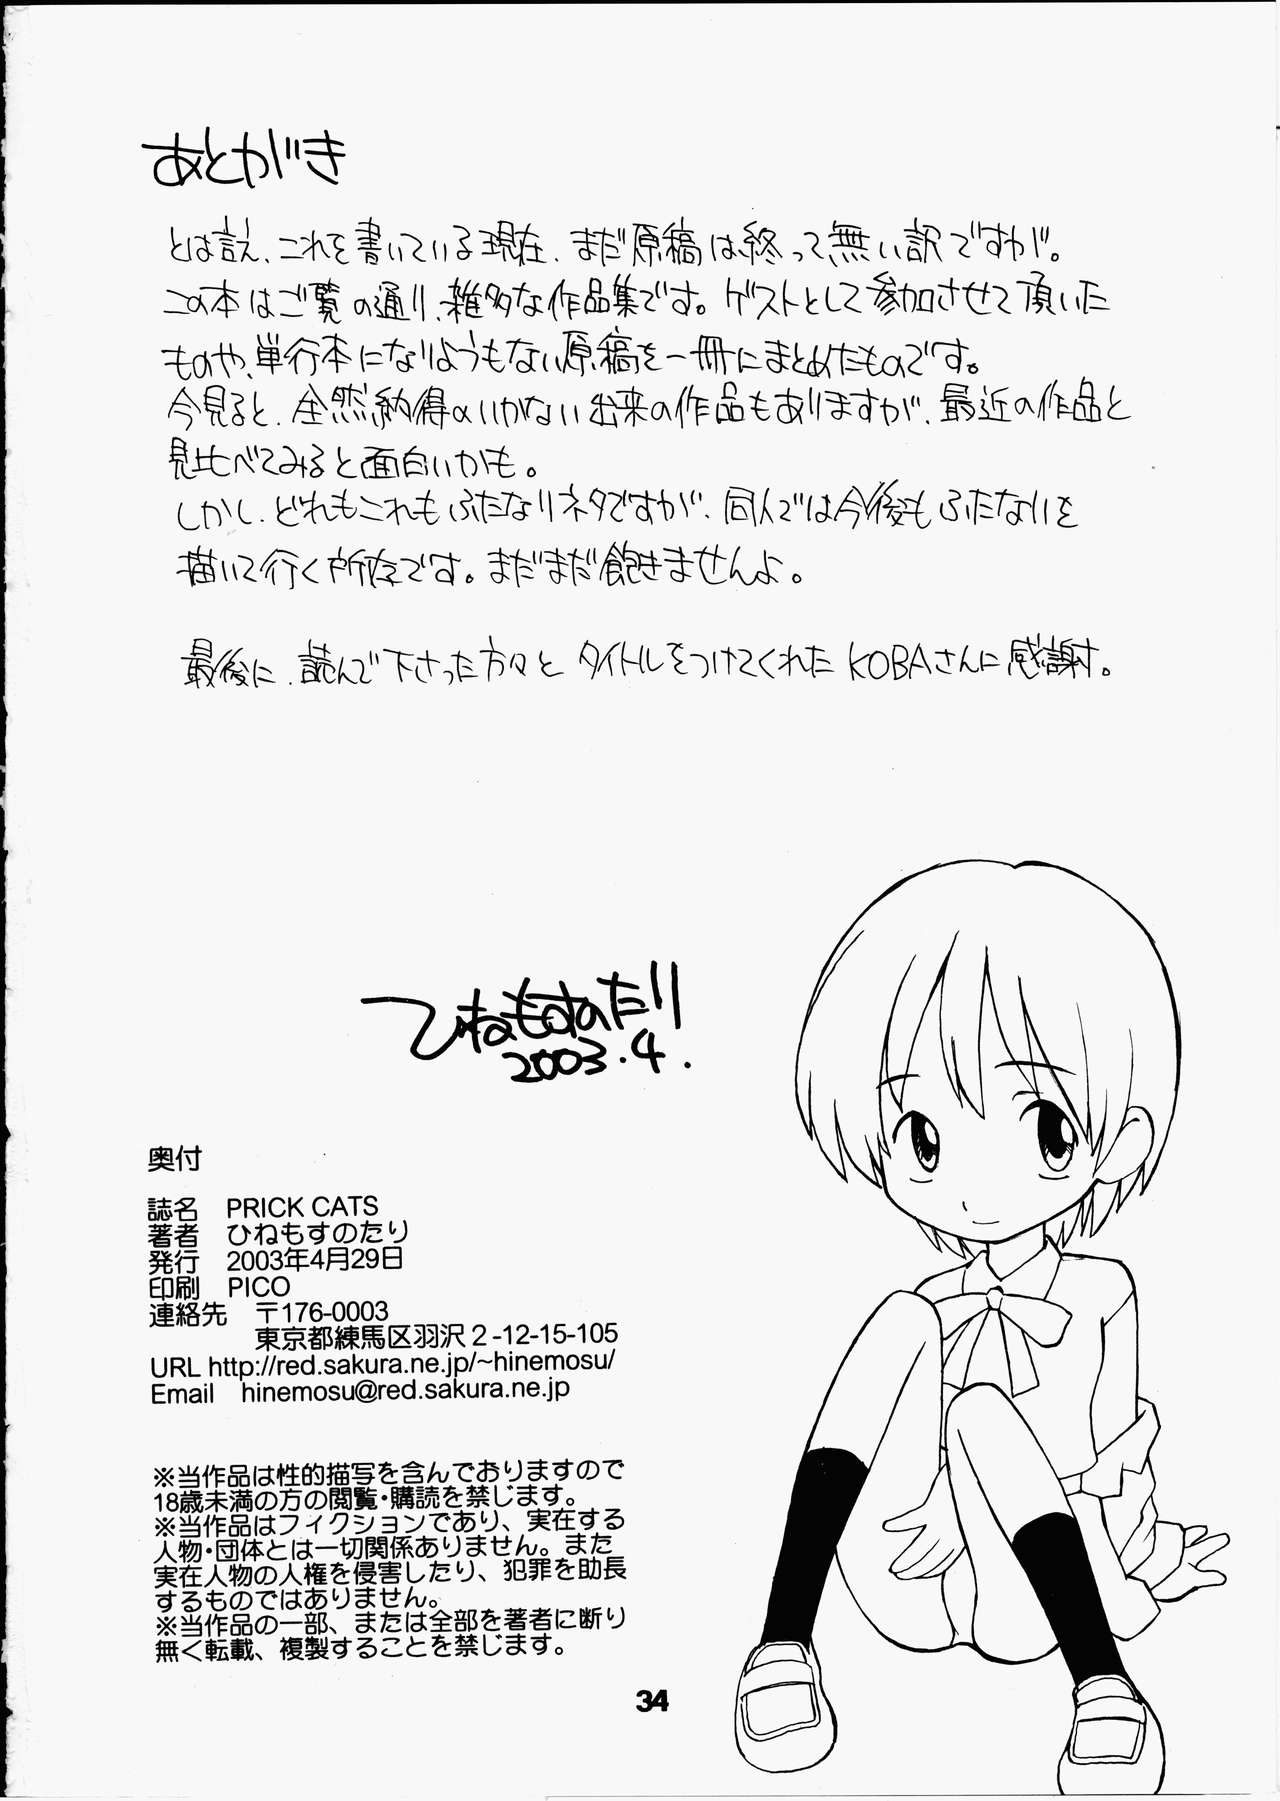 あとがき
とは言え、これを書いている現在、まだ原稿は終って無い訳ですが。
この本はご覧の通り、雑多な作品集です。ゲストとして参加させて頂いた
ものや、単行本になりようもない原稿を一冊にまとめたものです。
今見ると、全然納得のいかない出来の作品もありますが、最近の作品と
見比べてみると面白いかも。
しかし、どれもこれもふたなりネタですが、同人では今後もふたなりを
描いて行く所存です。まだまだ飽きませんよ。
最後に、読んで下さった方々とタイトルをつけてくれたKOBAさんに感謝。
ひねもすのたり
2003.4.
奥付
誌名 PRICK CATS
著者 ひねもすのたり
発行 2003年4月29日
印刷 PICO
連絡先 〒176-0003
東京都練馬区羽沢2-12-15-105
URL http://red.sakura.ne.jp/~hinemosu/
Email hinemosu@red.sakura.ne.jp
※当作品は性的描写を含んでおりますので
18歳未満の方の閲覧・購読を禁じます。
※当作品はフィクションであり、実在する
人物・団体とは一切関係ありません。また
実在人物の人権を侵害したり、犯罪を助長
するものではありません。
※当作品の一部、または全部を著者に断り
無く転載、複製することを禁じます。
34